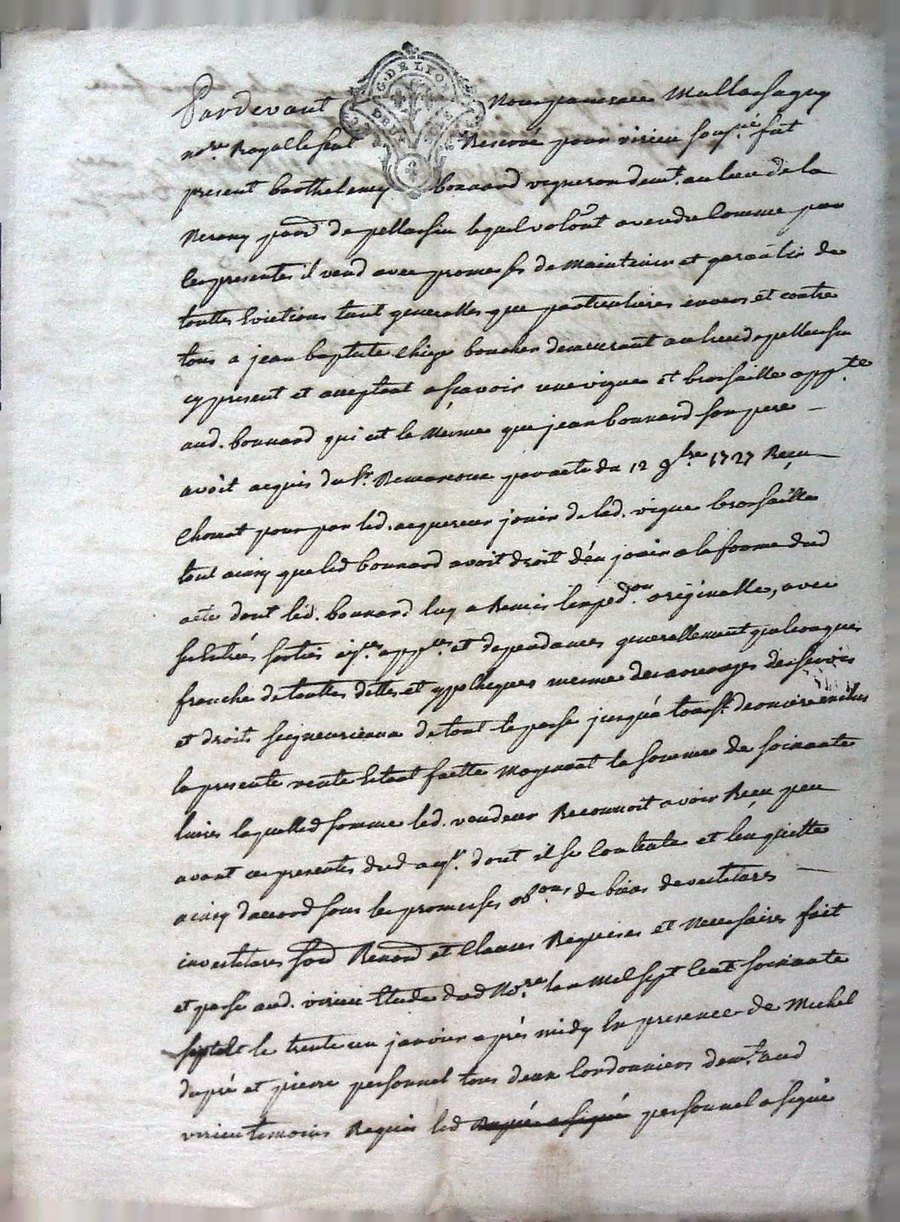 Pardevant Nous
G. DE LYON
no.re Royal Reservé pour virieu sous.né fut
present barthelemy bonnard vigneron dem.t au lieu de la
par. de pellussin lequel volont a vendu comme par
ces presentes il vend avec promesses de maintenir et garantir de
touttes Evictions tant generalles que particulieres envers et contre
tous a jean baptiste boucher demeurant au lieu de pellussin
cy present et acceptant asscavoir une vigne et brossaille app.te
aud. bonnard qui est la mesme que jean bonnard son pere
avoit acquis du S.r par acte du 12 9bre 1727 Reçu
Chorat pour par led. acquereur jouir de lad. vigne brossaille
tout ainsy que led bonnard avoit droit d'en jouir a la forme dud
acte dont led. bonnard luy a Remis l'exped.on originalle, avec
ses Entrés sorties et dependances generallement quelconques
franche de touttes dettes et ypotheques mesme des arrerages de servis
et droits seigneuriaux de tout le passé jusqu'a derniere
la presente vente Estant faitte moyenant la somme de soixante
livres laquelle somme led. vendeur Reconnoit avoir Reçu peu
avant ces presentes dud acq.r dont il se contente et l'en quitte
ainsy d'accord sous les promesses ob.ons de biens devestitures
investitures Renon.d et clauses Requises et necessaires fait
et passé aud. virieu Etude dud No.re l'an mil sept cent soixante
sept et le trente un janvier après midy En presence de Michel
dupré et pierre personnel tous deux cordonniers dem.t aud
virieu temoins Requis led personnel a signé